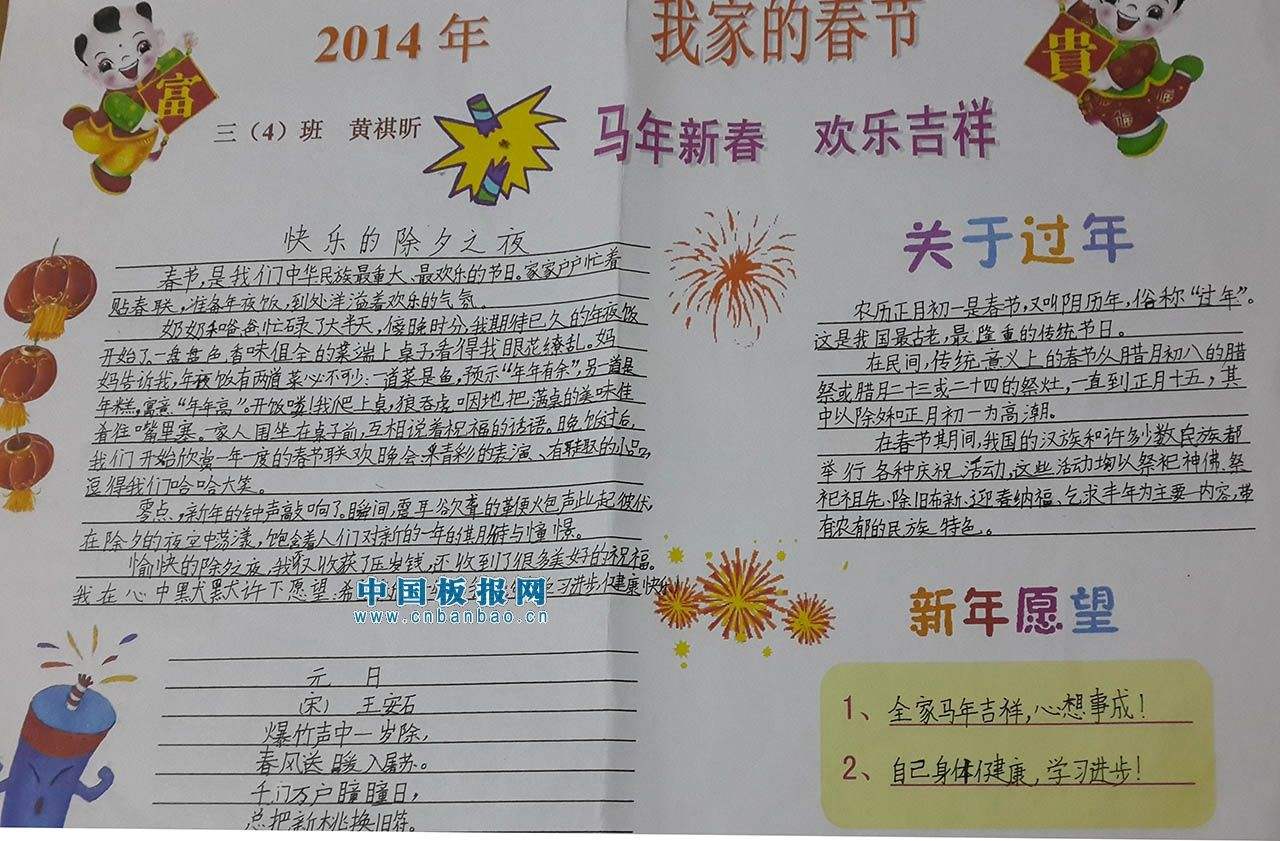 2014年 我家的春节
富
貴
三（4）班 黄祺昕
马年新春 欢乐吉祥
快乐的除夕之夜
春节，是我们中华民族最重大、最欢乐的节日。家家户户忙着
贴春联，准备年夜饭，到处洋溢着欢乐的气氛。
奶奶和爸爸忙碌了大半天，傍晚时分，我期待已久的年夜饭
开始了。一盘盘色香味俱全的菜端上桌子，看得我眼花缭乱。妈
妈告诉我，年夜饭有两道菜必不可少：一道菜是鱼，预示“年年有余”，另一道是
年糕，寓意“年年高”。开饭喽！我爬上桌，狼吞虎咽地把满桌的美味佳
肴往嘴里塞。一家人围坐在桌子前，互相说着祝福的话语。晚饭过后，
我们开始欣赏一年一度的春节联欢晚会。精彩的表演、有趣的小品，
逗得我们哈哈大笑。
零点，新年的钟声敲响了。瞬间，震耳欲聋的鞭炮声此起彼伏，
在除夕的夜空中荡漾，饱含着人们对新的一年的期待与憧憬。
愉快的除夕夜，我不仅收获了压岁钱，还收到了很多美好的祝福。
我在心中默默许下愿望：希 学习进步，健康快乐！
中国板报网
www.cnbanbao.cn
元 日
（宋） 王安石
爆竹声中一岁除，
春风送暖入屠苏。
千门万户瞳瞳日，
总把新桃换旧符。
关于过年
农历正月初一是春节，又叫阴历年，俗称“过年”。
这是我国最古老，最隆重的传统节日。
在民间，传统意义上的春节从腊月初八的腊
祭或腊月二十三或二十四的祭灶，一直到正月十五，其
中以除夕和正月初一为高潮。
在春节期间，我国的汉族和许多少数民族都
举行各种庆祝活动，这些活动均以祭祀神佛、祭
祀祖先、除旧布新、迎春纳福、乞求丰年为主要内容，带
有浓郁的民族特色。
新年愿望
1、全家马年吉祥，心想事成！
2、自己身体健康，学习进步！